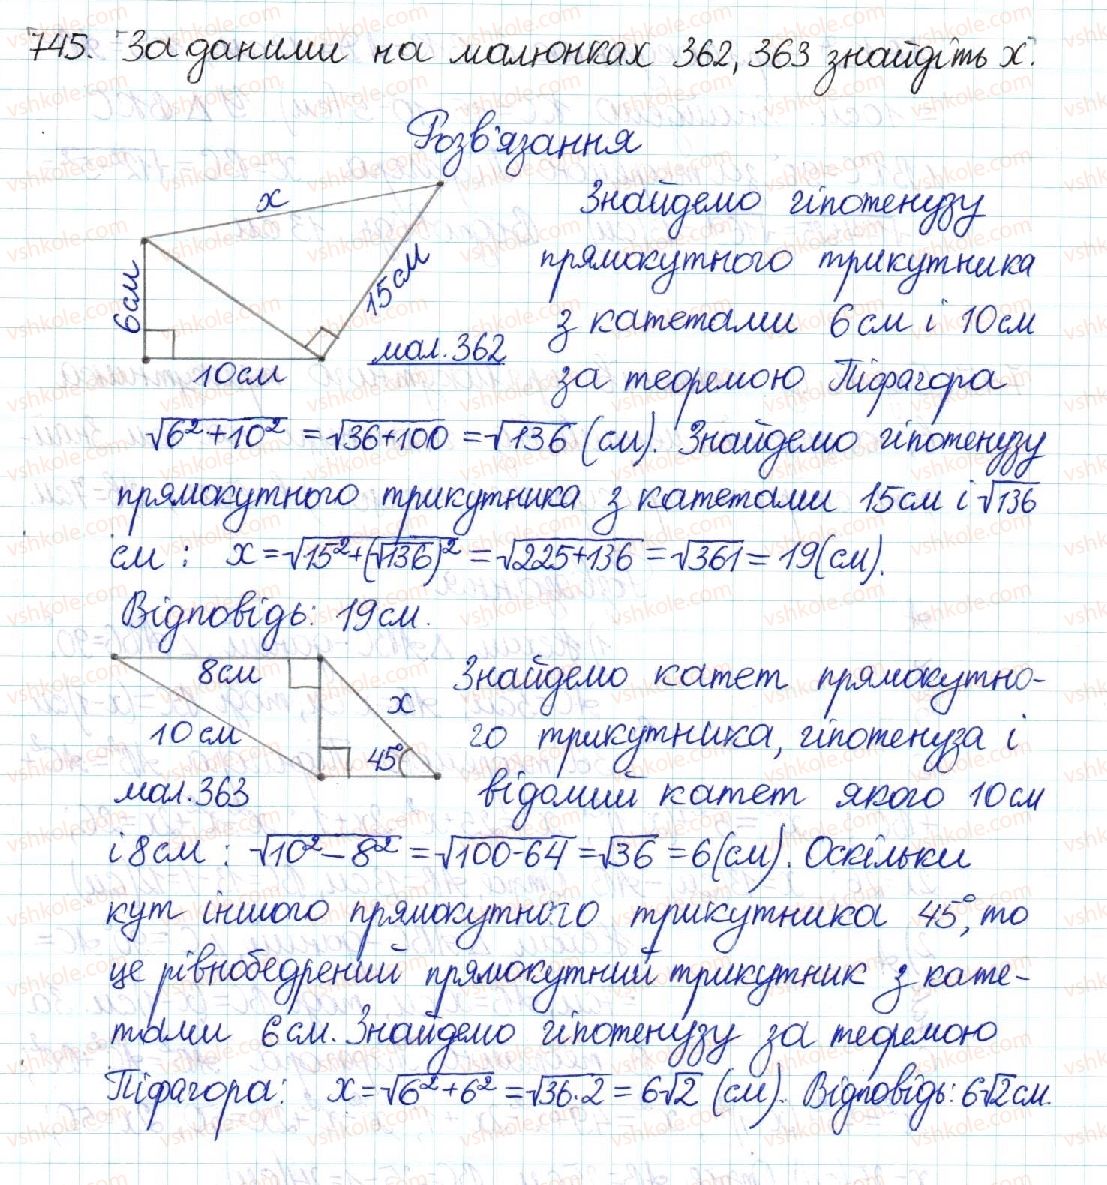 745. "За даними на малюнках 362, 363 знайдіть x".
Розв'язання
x
6 см
15 см
10 см
мал. 362
Знайдемо гіпотенузу
прямокутного трикутника
з катетами 6 см і 10 см
за теоремою Піфагора
√(6²+10²) = √(36+100) = √136 (см). Знайдемо гіпотенузу
прямокутного трикутника з катетами 15 см і √136
см: x = √(15²+(√136)²) = √(225+136) = √361 = 19 (см).
Відповідь: 19 см.
8 см
10 см
x
45°
мал. 363
Знайдемо катет прямокутно-
го трикутника, гіпотенуза і
відомий катет якого 10 см
і 8 см: √(10²-8²) = √(100-64) = √36 = 6 (см). Оскільки
кут іншого прямокутного трикутника 45°, то
це рівнобедрений прямокутний трикутник з кате-
тами 6 см. Знайдемо гіпотенузу за теоремою
Піфагора: x = √(6²+6²) = √(36·2) = 6√2 (см). Відповідь: 6√2 см.
vshkole.com